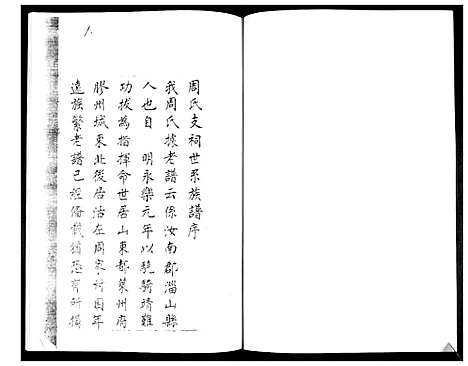 1.
周氏支祠世系族譜序
我周氏據老譜云係汝南郡淄山縣
人也自 明永樂元年以驍騎靖難
功拔為指揮命世居山東都萊州府
膠州城東北後居治在周家村因年
遠族繁老譜已經備載猶恐有所損